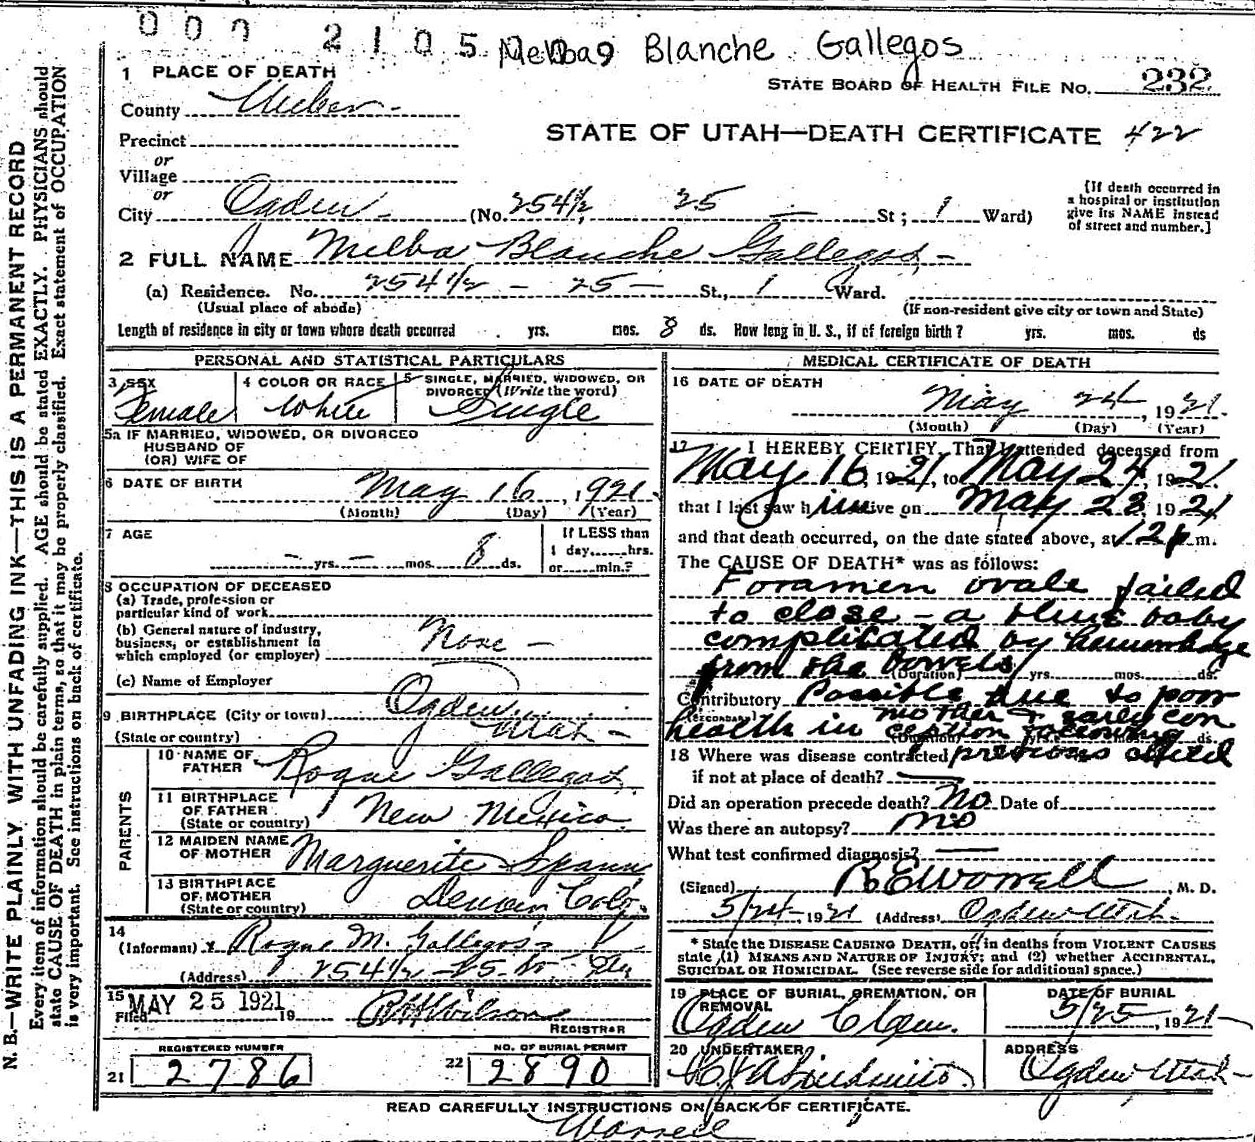 000 2105
Melba Blanche Gallegos
STATE BOARD OF HEALTH FILE NO. 232
STATE OF UTAH—DEATH CERTIFICATE 422
1 PLACE OF DEATH
County Weber
Precinct
or
Village
or
City Ogden (No. 254½ 25 St; 1 Ward)
[If death occurred in
a hospital or institution
give its NAME instead
of street and number.]
2 FULL NAME Melba Blanche Gallegos
(a) Residence. No. 254½ - 25 - St., 1 Ward.
(Usual place of abode) (If non-resident give city or town and State)
Length of residence in city or town where death occurred yrs. mos. 8 ds. How long in U. S., if of foreign birth? yrs. mos. ds
PERSONAL AND STATISTICAL PARTICULARS
3 SEX Female
4 COLOR OR RACE White
5 SINGLE, MARRIED, WIDOWED, OR
DIVORCED (Write the word)
Single
5a IF MARRIED, WIDOWED, OR DIVORCED
HUSBAND OF
(OR) WIFE OF
6 DATE OF BIRTH May 16, 1921
(Month) (Day) (Year)
7 AGE
- yrs. - mos. 8 ds.
If LESS than
1 day, hrs.
or min.?
8 OCCUPATION OF DECEASED
(a) Trade, profession or
particular kind of work
(b) General nature of industry,
business, or establishment in
which employed (or employer) None -
(c) Name of Employer
9 BIRTHPLACE (City or town) Ogden
(State or country) Utah -
PARENTS
10 NAME OF
FATHER Roque Gallegos
11 BIRTHPLACE
OF FATHER
(State or country) New Mexico
12 MAIDEN NAME
OF MOTHER Marguerite Spann
13 BIRTHPLACE
OF MOTHER
(State or country) Denver Colo.
14
(Informant) Roque M. Gallegos
(Address) 254½ - 25 -
15
Filed MAY 25 1921 19
R H Wilson
REGISTRAR
REGISTERED NUMBER
21 2786
NO. OF BURIAL PERMIT
22 2890
MEDICAL CERTIFICATE OF DEATH
16 DATE OF DEATH
May 24, 1921
(Month) (Day) (Year)
17 I HEREBY CERTIFY, That I attended deceased from
May 16, 1921, to May 24, 1921
that I last saw h im alive on May 23, 1921
and that death occurred, on the date stated above, at 12 p m.
The CAUSE OF DEATH* was as follows:
Foramen ovale failed
to close a blue baby
complicated by hemorrhage
from the bowels
(Duration) yrs. mos. ds.
Contributory Possible due to poor
(SECONDARY)
health in mother & early con
ception following
previous child
(Duration) yrs. mos. ds.
18 Where was disease contracted
if not at place of death?
Did an operation precede death? No Date of
Was there an autopsy? no
What test confirmed diagnosis?
(Signed) R E Worrell, M. D.
5/24 1921 (Address) Ogden Utah
* State the DISEASE CAUSING DEATH, or, in deaths from VIOLENT CAUSES
state (1) MEANS AND NATURE OF INJURY; and (2) whether ACCIDENTAL,
SUICIDAL OR HOMICIDAL. (See reverse side for additional space.)
19 PLACE OF BURIAL, CREMATION, OR
REMOVAL
Ogden C Cem.
DATE OF BURIAL
5/25, 1921
20 UNDERTAKER
ADDRESS
Ogden Utah
READ CAREFULLY INSTRUCTIONS ON BACK OF CERTIFICATE.
Worrell
N. B.—WRITE PLAINLY, WITH UNFADING INK—THIS IS A PERMANENT RECORD
Every item of information should be carefully supplied. AGE should be stated EXACTLY. PHYSICIANS should
state CAUSE OF DEATH in plain terms, so that it may be properly classified. Exact statement of OCCUPATION
is very important. See instructions on back of certificate.